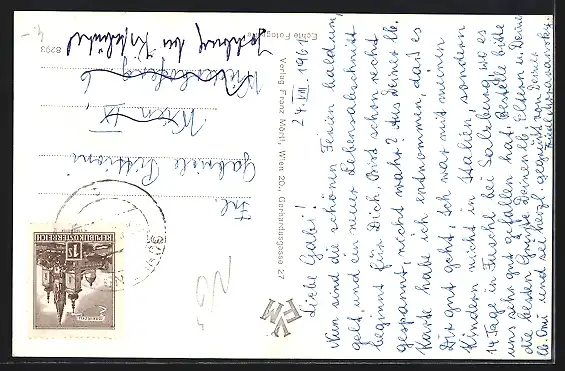 24. VIII. 1961
Liebe Gabi!
Nun sind die schönen Ferien bald um,
gell, und ein neuer Lebensabschnitt
beginnt für Dich. Bist schon recht
gespannt, nicht wahr? Aus Deiner lb.
Karte habe ich entnommen, daß es
Dir gut geht. Ich war mit meinen
Kindern nicht in Italien, sondern
14 Tage in Fuschl bei Salzburg, wo es
uns sehr gut gefallen hat. Bestelle bitte
die besten Grüße Deinen lb. Eltern u. Deiner
lb. Omi und sei herzl. gegrüßt von Deiner
Echte Fotog
Verlag Franz Mörtl, Wien 20., Gerhardusgasse 27
8293
Frl.
Gabriele Pittioni
Wien IX,
6
Jochberg bei Kitzbühel
REPUBLIK ÖSTERREICH